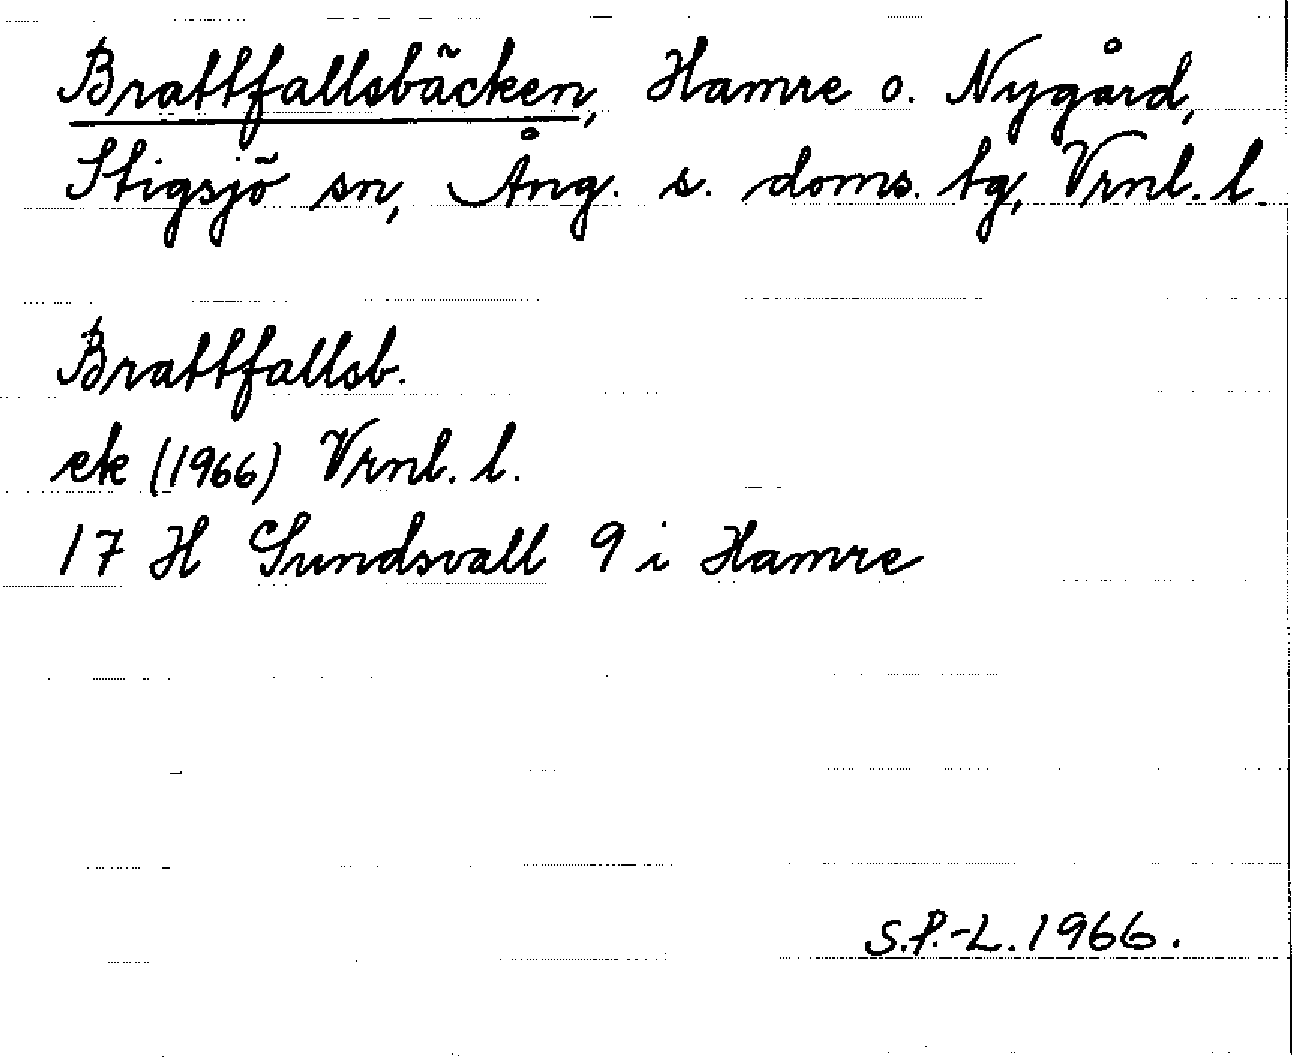 Brattfallsbäcken, Hamre o. Nygård,
Stigsjö sn, Ång. s. doms. tg, Vrnl. l.
Brattfallsb.
ek (1966) Vrnl. l.
17 H Sundsvall 9 i Hamre
S.P.-L. 1966.